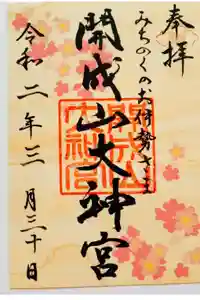 奉拝
みちのくのお伊勢さま
開成山大神宮
開成山大神宮
令和二年三月三十日